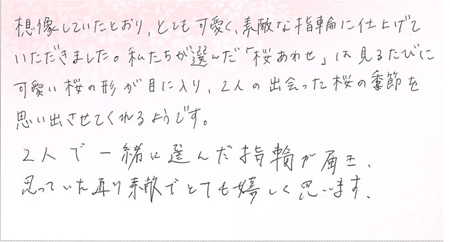 想像していたとおり、とても可愛く、素敵な指輪に仕上げて
いただきました。私たちが選んだ「桜あわせ」は見るたびに
可愛い桜の形が目に入り、2人の出会った桜の季節を
思い出させてくれるようです。
2人で一緒に選んだ指輪が届き、
思っていた通り素敵でとても嬉しく思います。